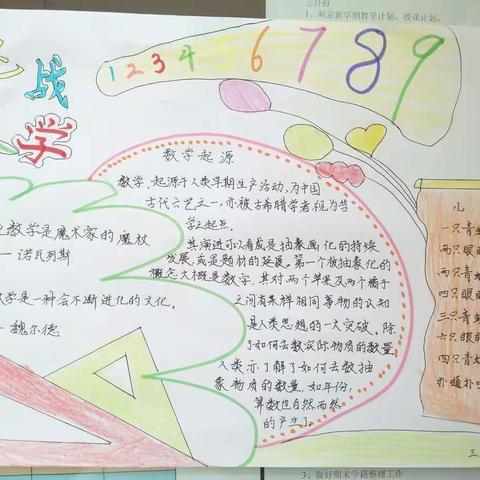 三月份
1、制定新学期教学计划、授课计划。
战
学
1 2 3 4 5 6 7 8 9
数学起源
数学,起源于人类早期生产活动,为中国
古代六艺之一,亦被古希腊学者视为哲
学之起点。
其演进可以看成是抽象画化的持续
发展,或是题材的延展。第一个被抽象化的
概念大概是数字,其对两个苹果及两个橘子
之间有某样相同事物的认知
是人类思想的一大突破。除
了如何去数实际物质的数量,
人类亦了解了如何去数抽
象物质的数量,如年份,
算数也自然而然
的产生了。
数学是魔术家的魔杖
——诺瓦列斯
数学是一种会不断进化的文化。
魏尔德
儿
一只青蛙
两只眼睛
两只青蛙
四只眼睛
三只青蛙
六只眼睛
四只青蛙
扑通扑
三
3、做好期末学籍整理工作